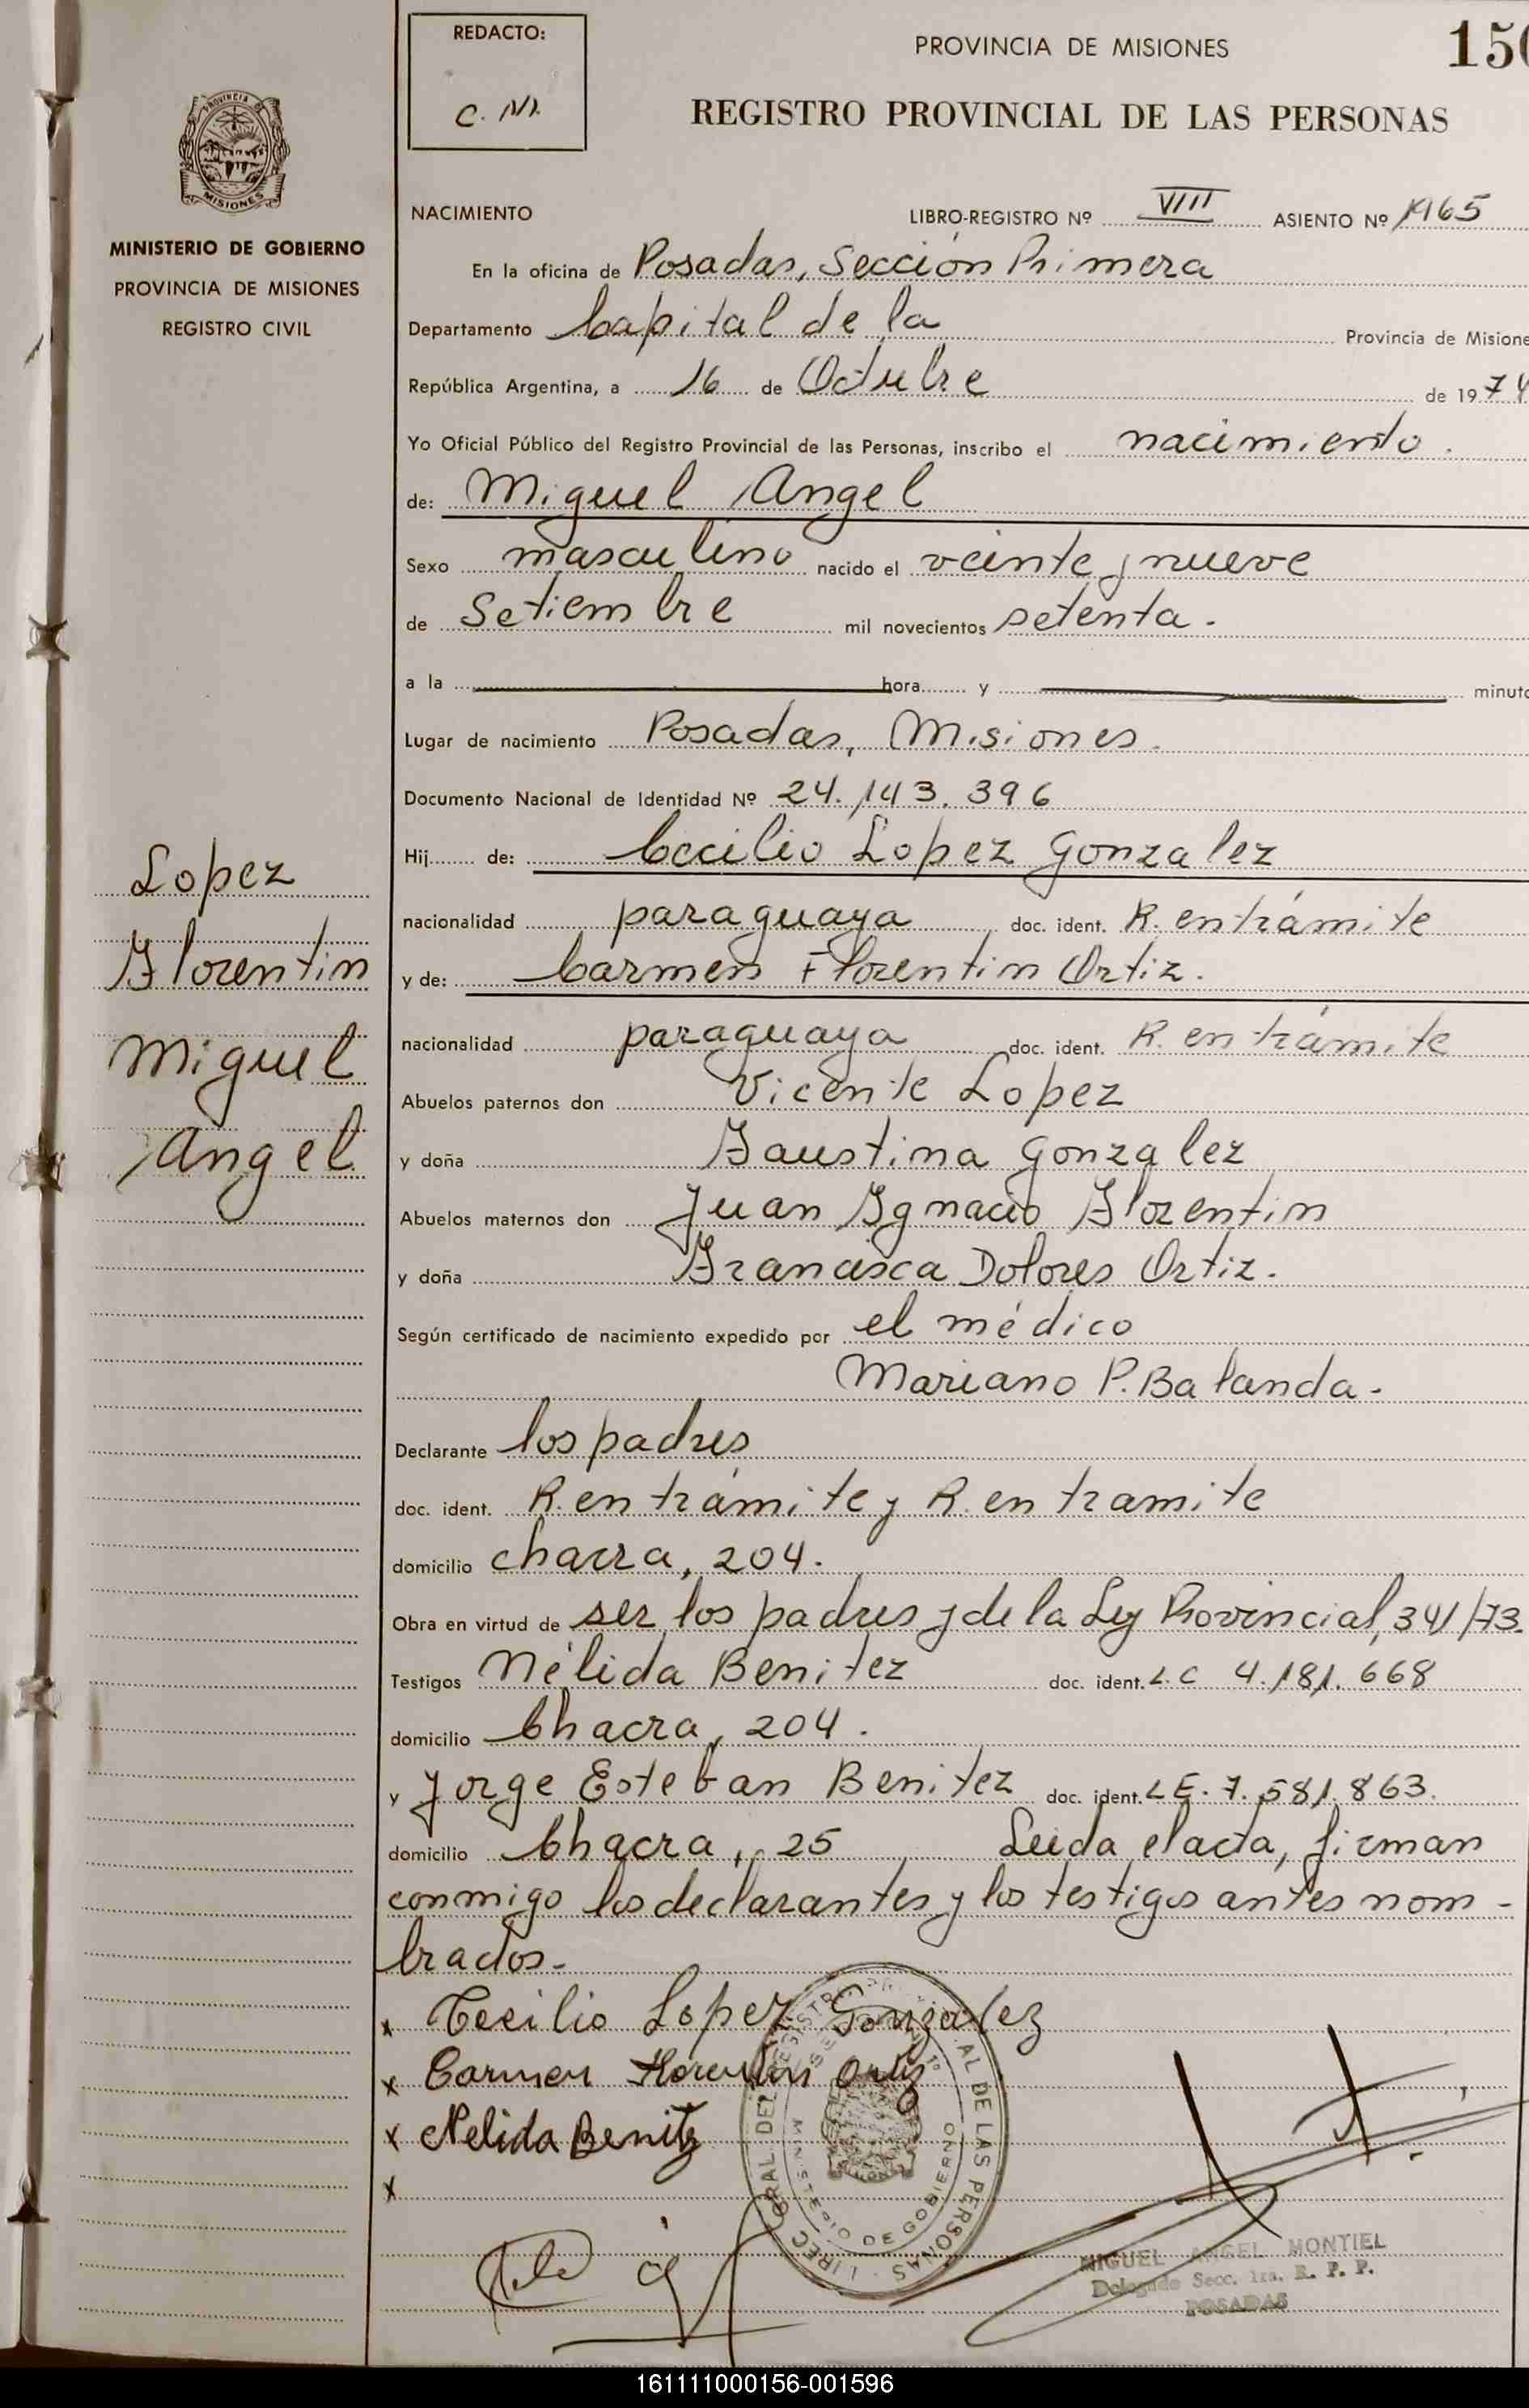 REDACTO:
C. M.
PROVINCIA DE MISIONES
150
REGISTRO PROVINCIAL DE LAS PERSONAS
PROVINCIA DE
MISIONES
MINISTERIO DE GOBIERNO
PROVINCIA DE MISIONES
REGISTRO CIVIL
NACIMIENTO LIBRO-REGISTRO Nº VIII ASIENTO Nº 1965
En la oficina de Posadas, Sección Primera
Departamento Capital de la Provincia de Misione
República Argentina, a 16 de Octubre de 1974
Yo Oficial Público del Registro Provincial de las Personas, inscribo el nacimiento.
de: Miguel Angel
Sexo masculino nacido el veinte y nueve
de Setiembre mil novecientos setenta.
a la hora y minuto
Lugar de nacimiento Posadas, Misiones.
Documento Nacional de Identidad Nº 24.143.396
Hij de: Cecilio Lopez Gonzalez
nacionalidad paraguaya doc. ident. R. en trámite
y de: Carmen Florentin Ortiz.
nacionalidad paraguaya doc. ident. R. en trámite
Abuelos paternos don Vicente Lopez
y doña Faustina Gonzalez
Abuelos maternos don Juan Ignacio Florentin
y doña Francisca Dolores Ortiz.
Según certificado de nacimiento expedido por el médico
Mariano P. Balanda.-
Declarante los padres
doc. ident. R. en trámite y R. en tramite
domicilio chacra, 204.
Obra en virtud de ser los padres y de la Ley Provincial, 341/73.
Testigos Nélida Benitez doc. ident. L.C 4.181.668
domicilio Chacra, 204.
y Jorge Esteban Benitez doc. ident. L E. 7.581.863.
domicilio Chacra, 25 Leida el acta, firman
conmigo los declarantes y los testigos antes nom-
brados.-
Lopez
Florentin
Miguel
Angel
x Cecilio Lopez Gonzalez
x Carmen Florentin Ortiz
x Nelida Benitz
x
MINISTERIO DE GOBIERNO
MIGUEL ANGEL MONTIEL
Delegado Secc. 1ra. R. P. P.
POSADAS
161111000156-001596